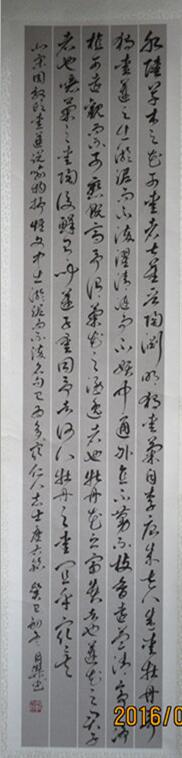 水陸草木之花可愛者甚蕃晋陶渊明獨愛菊自李唐来世人甚愛牡丹予
獨愛蓮之出淤泥而不染濯清漣而不妖中通外直不蔓不枝香遠益清亭亭淨
植可遠觀而不可褻玩焉予謂菊花之隱逸者也牡丹花之富貴者也蓮花之君子
者也噫菊之愛陶後鮮有聞蓮之愛同予者何人牡丹之愛宜乎众矣
宋周敦頤愛蓮說 出淤泥而不染名句 仁人志士 癸巳
2016/0